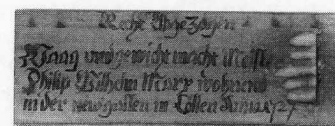 Recht Abgezogen
Waag und gewicht macht Meister
Philip Wilhelm Marx wohnend
in der newgassen in Cöllen Anno 1727